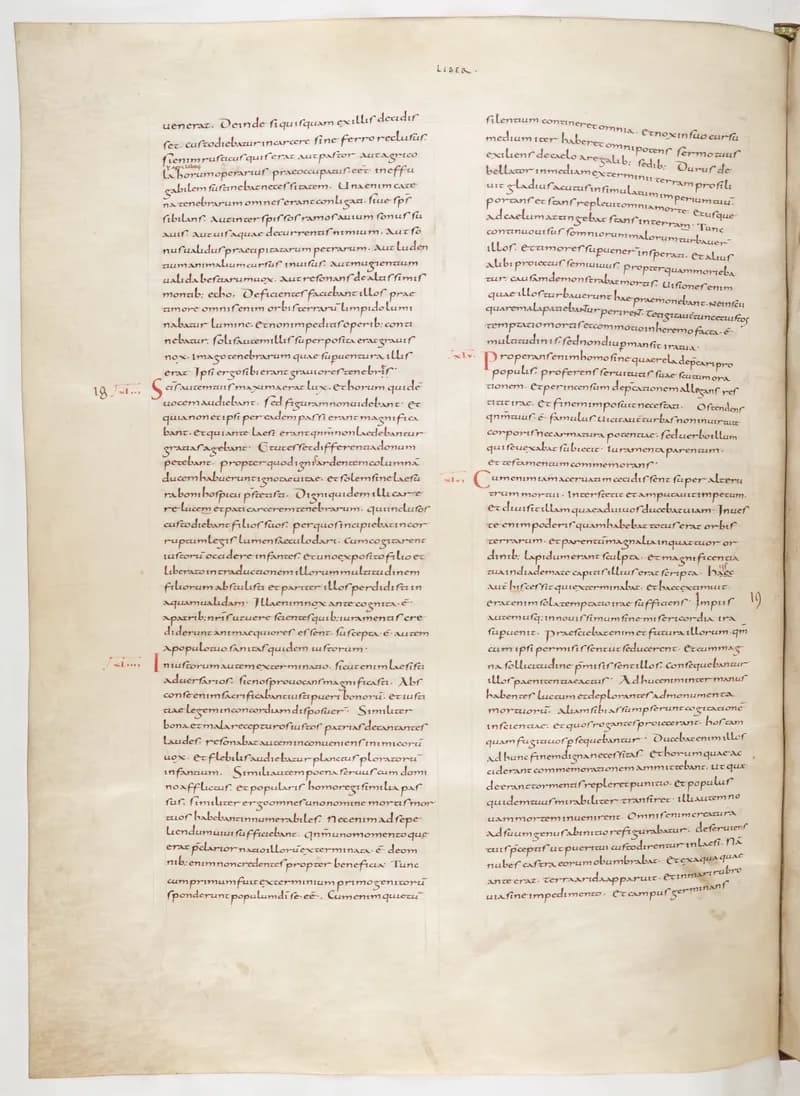 LIBER.
uenerat. Deinde siquisquam exillis decidis
set. custodiebatur incarcere sine ferro reclusus.
si enim rusticus quis erat. aut pastor. aut agrico
la horum operarius praeoccupatus eet. ineffu
gabilem sustinebat necessitatem. Una enim cate
na tenebrarum omnes erant conligati. siue sps
sibilans. Aut inter spissos ramos auium sonus su
auis. Aut uis aquae decurrentis nimium. Aut so
nus ualidus praecipitatarum petrarum. Aut luden
tium animalium cursus inuisus. Aut mugientium
ualida bestiarum uox. Aut resonans de altissimis
montib; echo. Deficientes faciebant illos prae
timore omnis enim orbis terrarū limpido lumi
nabatur lumine. et non impeditis operib; conti
nebatur. solis autem illis superposita erat grauis
nox. imago tenebrarum quae superuentura illis
erat. Ipsi ergo sibi erant grauiores tenebris.
18 ·xl...
Scis autem tuis maxima erat lux. Et horum quidē
uocem audiebant. sed figuram non uidebant. Et
quia non et ipsi per eadem passi erant magnifica
bant. et qui ante laesi erant qnm̄ non laedebantur
gratias agebant. Et ut esset differentia donum
petebant. propter quod ignis ardentem columnā
ducem habuerunt ignotae uitae. et solem sine laesu
ra boni hospitii p̄stitisti. Digni quidem illi care
re lucem et pati carcerem tenebrarum. qui inclusos
custodiebant filios tuos. per quos incipiebat incor
ruptum legis lumen saeculo dari. Cum cogitarent
iustorū occidere infantes. et uno exposito filio et
liberato intraductionem illorum multitudinem
filiorum abstulisti et pariter illos perdidisti in
aqua ualidam. Illa enim nox ante cognita ē
a patrib; nris ut uere scientes quib; iuramentis cre
diderunt animaequiores essent. suscepta ē autem
a populo tuo sanitas quidem iustorum.
·xl....
Iniustorum autem exterminatio. sicut enim laesisti
aduersarios. sic nos prouocans magnificasti. Abs
conse enim sacrificabant iusti pueri bonorū. et iusti
tiae legem in concordiam disposuer̄. Similiter
bona et mala recepturos iustos patrias decantantes
laudes. resonabat autem inconueniens inimicorū
uox. et flebilis audiebatur planctus ploratorū
infantium. Simili autem poena seruus cum domi
no afflictus. et popularis homo regi similia pas
sus. similiter ergo omnes uno nomine mortis mor
tuos habebant innumerabiles. Nec enim ad sepe
liendum uiui sufficiebant. qnm̄ uno momento que
erat p̄clarior natio illorū exterminata ē. de om
nib; enim non credentes propter beneficia. Tunc
cum primum fuit exterminium primogenitorū
sponderunt populum dī se eē. Cum enim quietū
silentium contineret omnia. et nox in suo cursu
medium iter haberet omnipotens sermo tuus
exiliens de caelo a regalib; sedib; Durus de
bellator in mediam exterminii terram prosili
uit gladius acutus insimulatum imperium tuū
portans et stans repleuit omnia morte. et usque
ad caelum attingebat stans in terram. Tunc
continuo uisus somniorum malorum turbauer̄
illos. et timores superuenerꝰ insperati. et alius
alibi proiectus semiuiuus. propter quam morieba
tur. causam demonstrabat mortis. Uisiones enim
quae illos turbauerunt haec praemonebant. ne inscii
quare mala patiebantur perirent. Tetigit autē tunc et iustos
temptatio mortis et commotio in heremo facta ē
multitudinis. sed non diu permansit ira tua.
·xlv.
Properans enim homo sine querela dep̄cari pro
populis. proferens seruitutis suae scutum ora
tionem. et per incensum dep̄cationem allegans res
titit irae. et finem imposuit necessitati. Ostendens
qnm̄ tuus ē famulus. Uicit autē turbas non in uirtute
corporis nec armatura potentiae. sed uerbo illum
qui se uexabat subiecit. iuramenta parentum.
et testamentum commemorans.
·xl.
Cum enim iam aceruatim cecidissent super alteru
trum mortui. Interstetit et amputauit impetum.
et diuisit illam quae ad uiuos ducebat uiam. In ues
te enim poderis quam habebat totus erat orbis
terrarum. et parentum magnalia in quattuor or
dinib; lapidum erant sculpta. et magnificentia
tua in diademate capitis illius erat scripta. haec
aut̄ his cessit qui exterminabat. et haec extimuit.
erat enim sola temptatio irae sufficiens. Impiis
19
autem usq; in nouissimum sine misericordia ira
superuenit. Praesciebat enim et futura illorum. qm̄
cum ipsi permisissent ut se ducerent. et cum mag
na sollicitudine p̄misissent illos. consequebantur
illos paenitentiae actus. Adhuc enim inter manus
habentes luctum et deplorantes ad monumenta
mortuorū. Aliam sibi assumpserunt cogitationē
inscientiae. et quos rogantes proiecerant. hos tam
quam fugitiuos p̱sequebantur. Ducebat enim illos
ad hunc finem digna necessitas. et horum quae ac
ciderant commemorationem ammittebant. ut quae
deerant tormentis repleret punitio. et populus
quidem tuus mirabiliter transiret. illi autem no
uam mortem inuenirent. Omnis enim creatura
ad suum genus ab initio refigurabatur. deseruiens
tuis p̄ceptis ut pueri tui custodirentur inlaesi. Nā
nubes castra eorum obumbrabat. et ex aqua quae
ante erat. terra arida apparuit. et in mari rubro
uia sine impedimento. et campus germinans